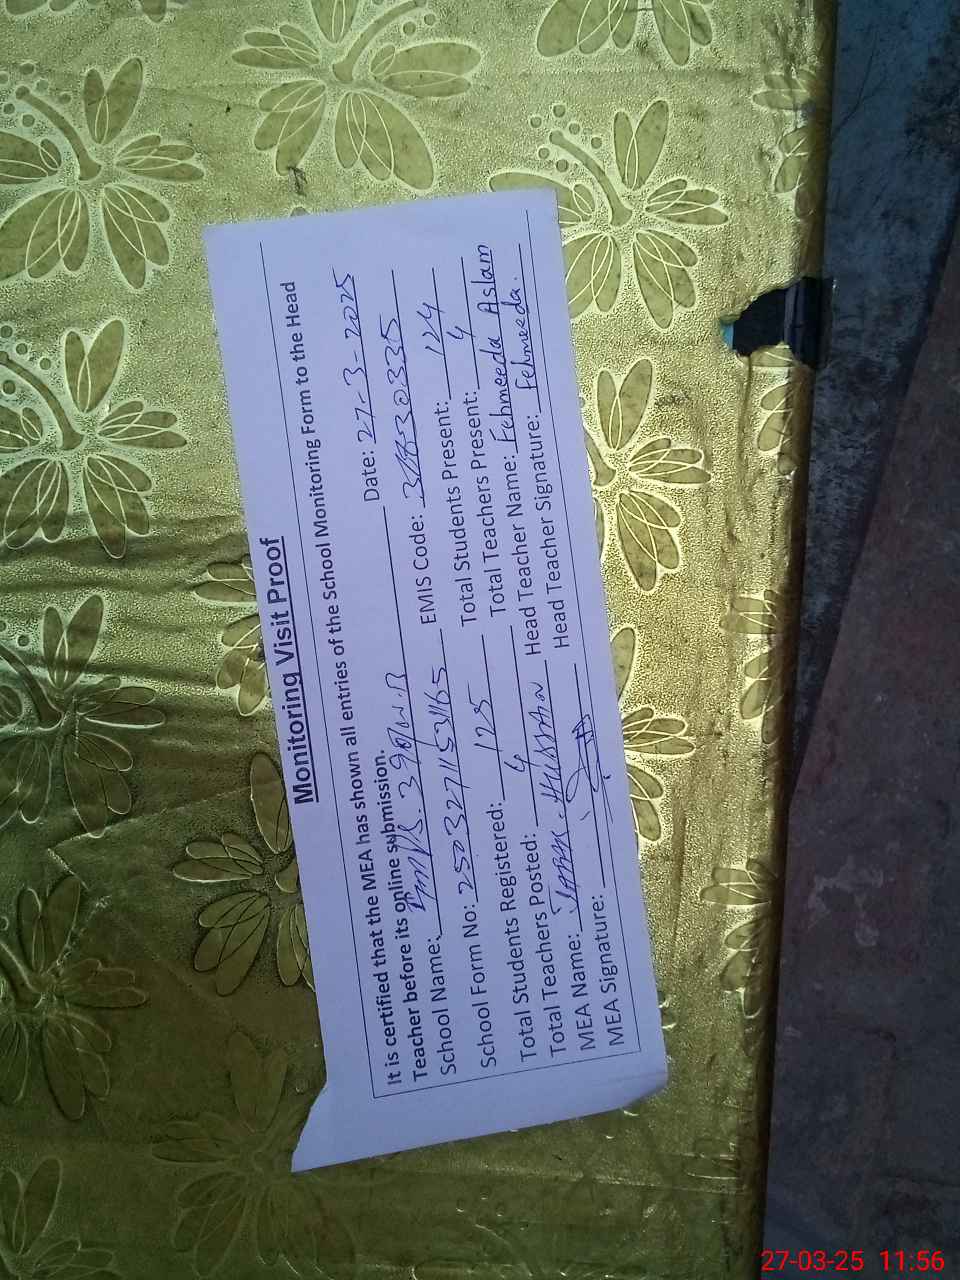 Monitoring Visit Proof
It is certified that the MEA has shown all entries of the School Monitoring Form to the Head
Teacher before its online submission.
School Name: Date: 27-3-2025
School Form No: 25032711531165 EMIS Code:
Total Students Registered: 125 Total Students Present: 124
Total Teachers Posted: 4 Total Teachers Present: 4
MEA Name: Hussain Head Teacher Name: Fehmeeda Aslam
MEA Signature: Head Teacher Signature: Fehmeeda.
27-03-25 11:56